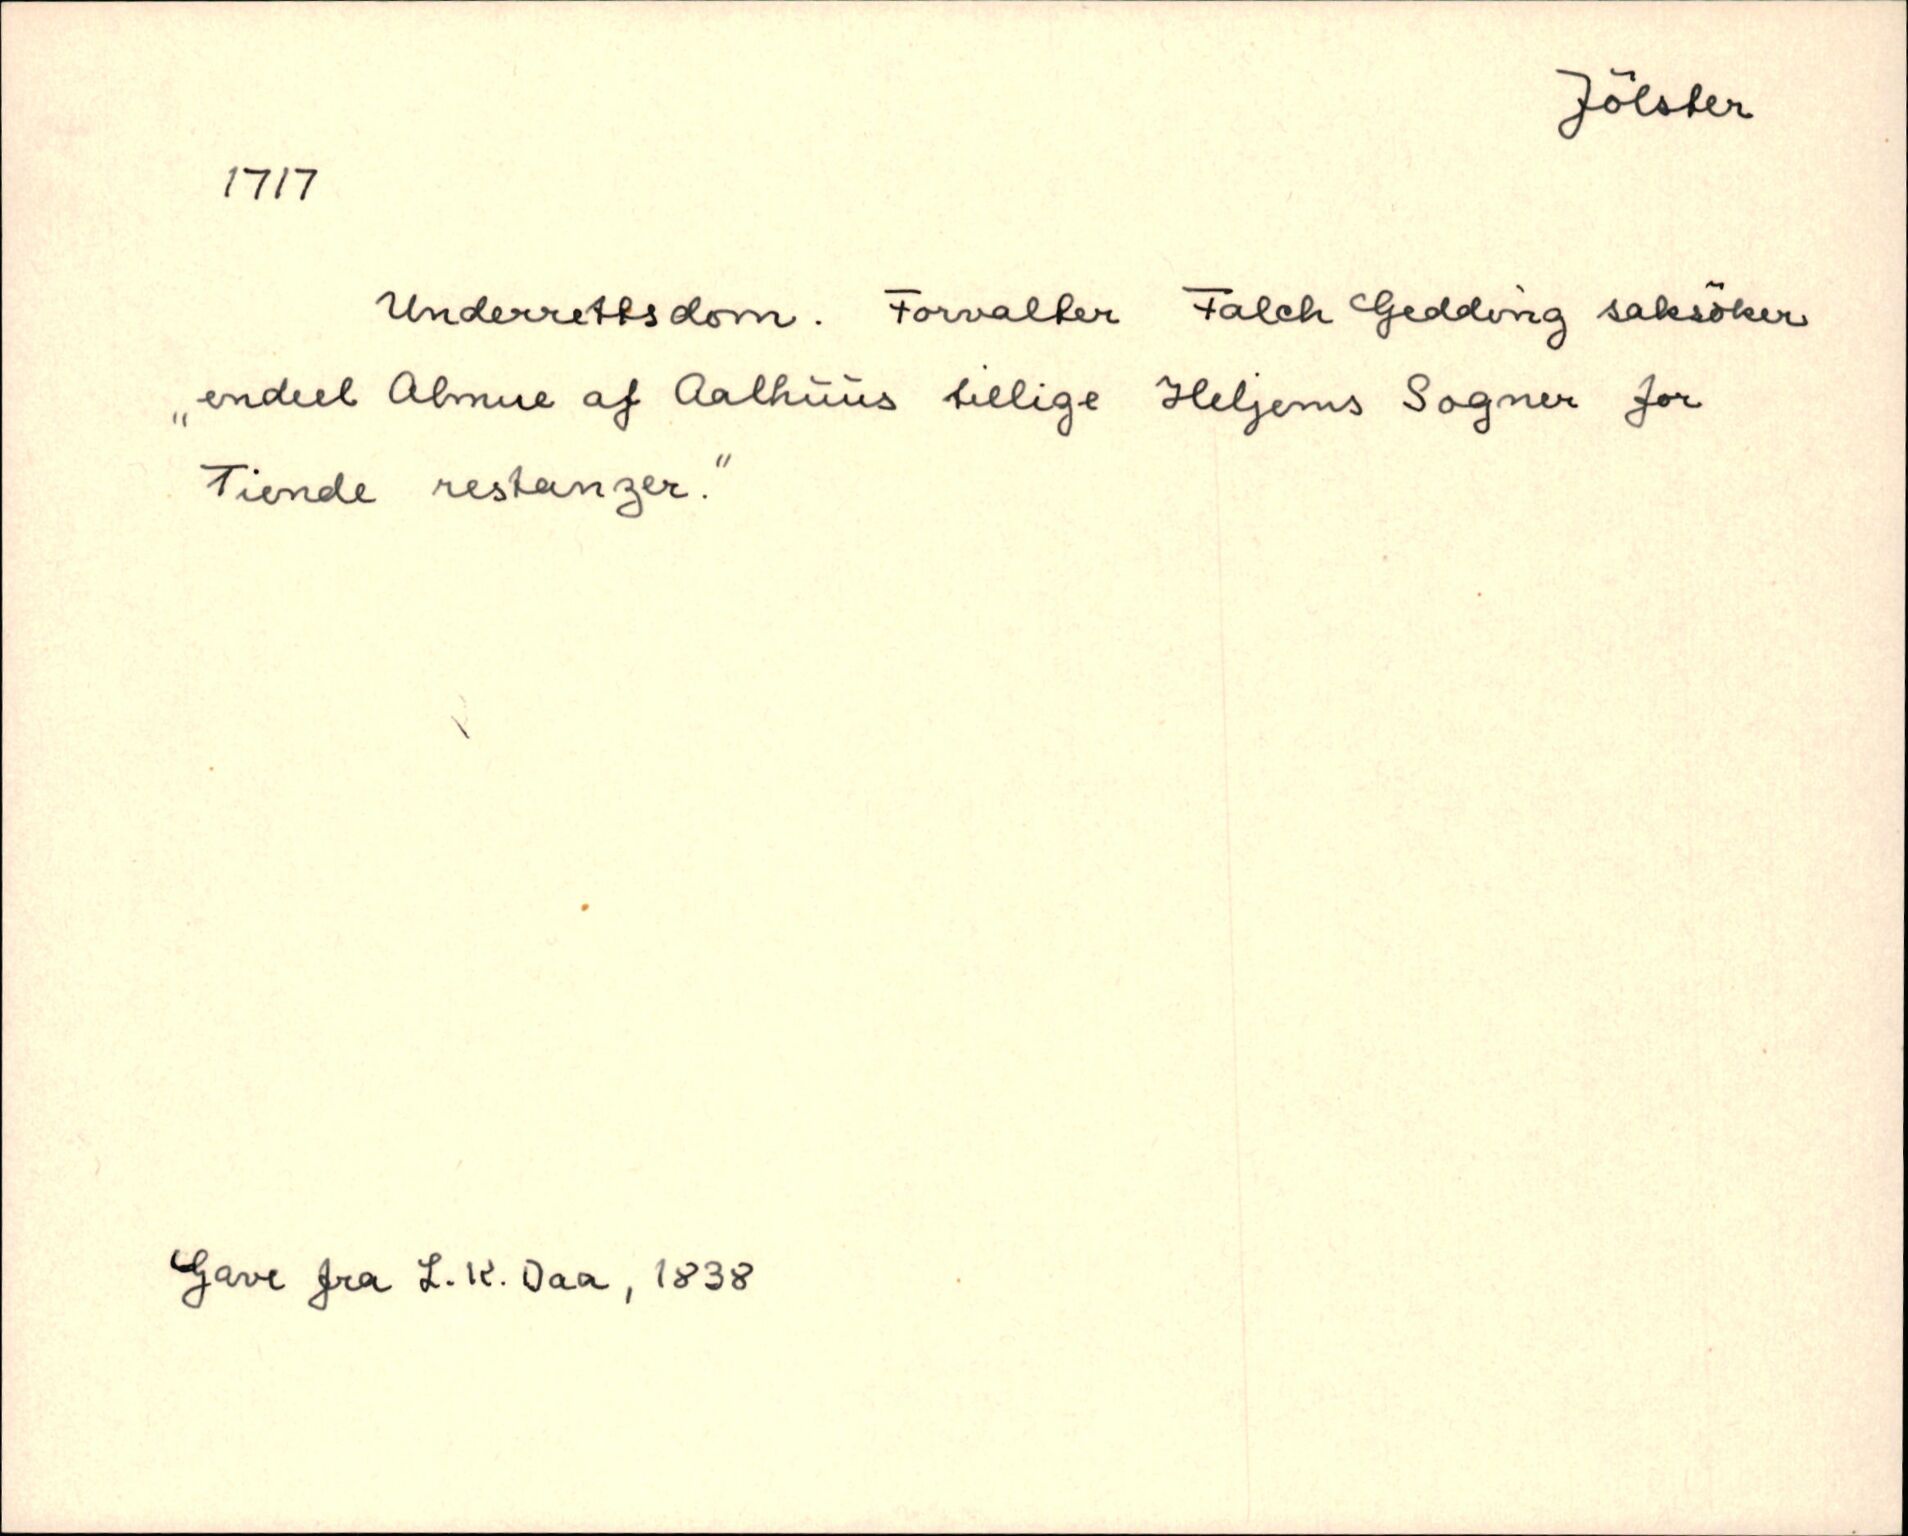 Jölster
1717
Underrettsdom. Forvalter Falch Gedding saksöker
„endeel Almue af Aalhüüs tillige Heljems Sogner for
Tiende restanzer."
Gave fra L. K. Daa, 1838